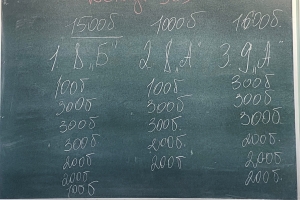 1500б 1000б 1600б
1. 8 „Б" 2. 8 „А" 3. 9 „А"
100б 100б 300б
300б 300б 300б
300б 300б. 300б
300б 200б. 200б.
200б 200б 200б.
200б 200б
100б